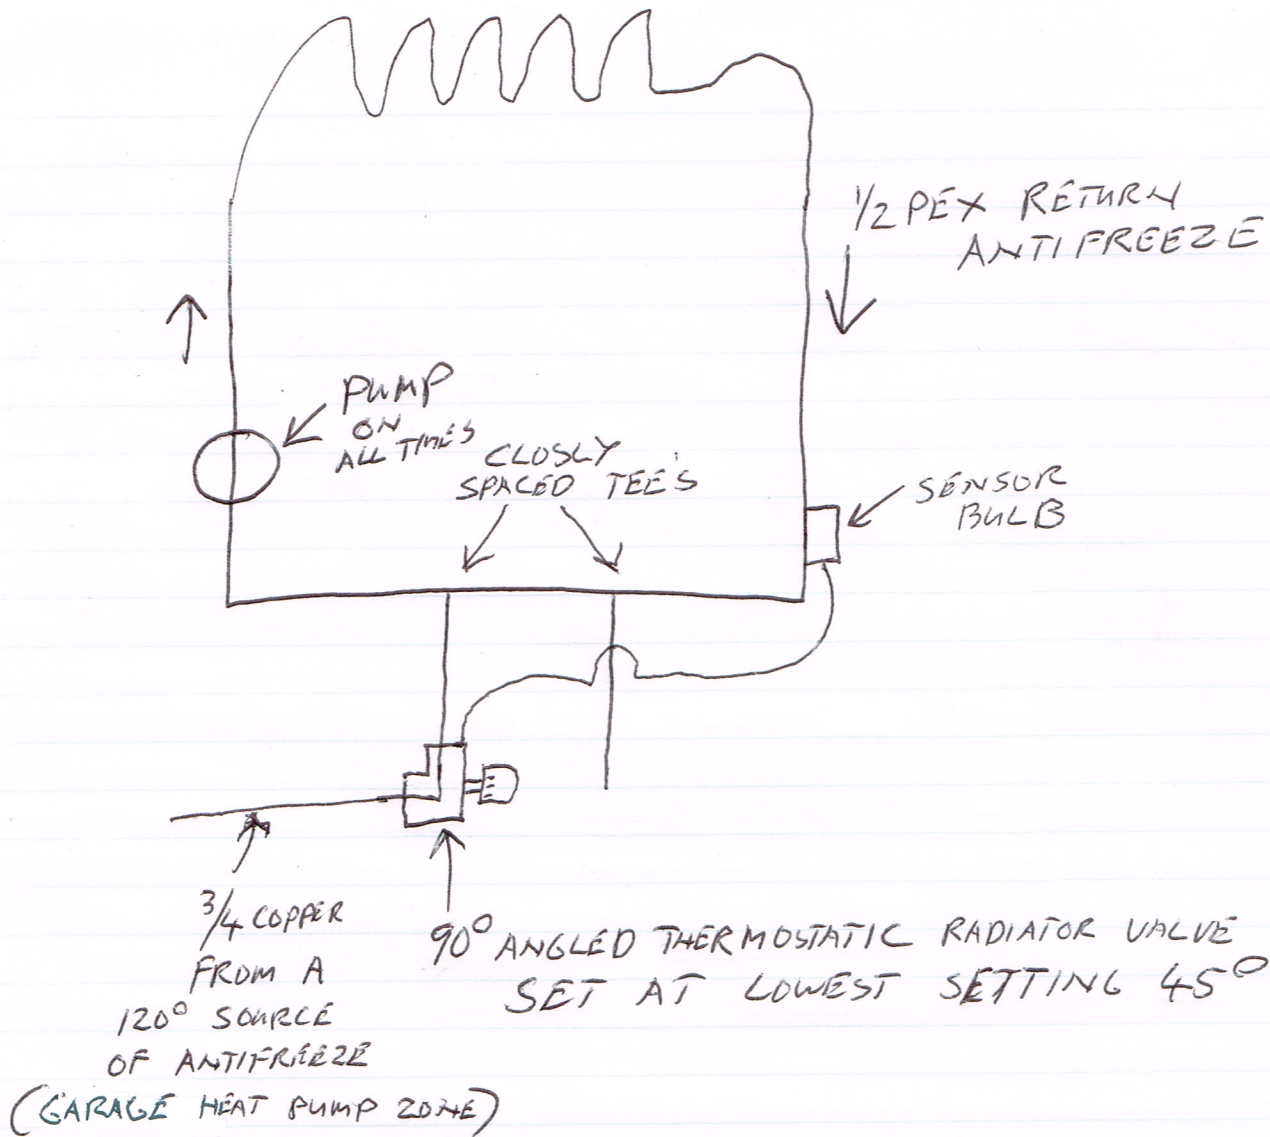 1/2 PEX RETURN
ANTIFREEZE
PUMP
ON
ALL TIMES
CLOSLY
SPACED TEE'S
SENSOR
BULB
3/4 COPPER
FROM A
120° SOURCE
OF ANTIFREEZE
(GARAGE HEAT PUMP ZONE)
90° ANGLED THERMOSTATIC RADIATOR VALVE
SET AT LOWEST SETTING 45°